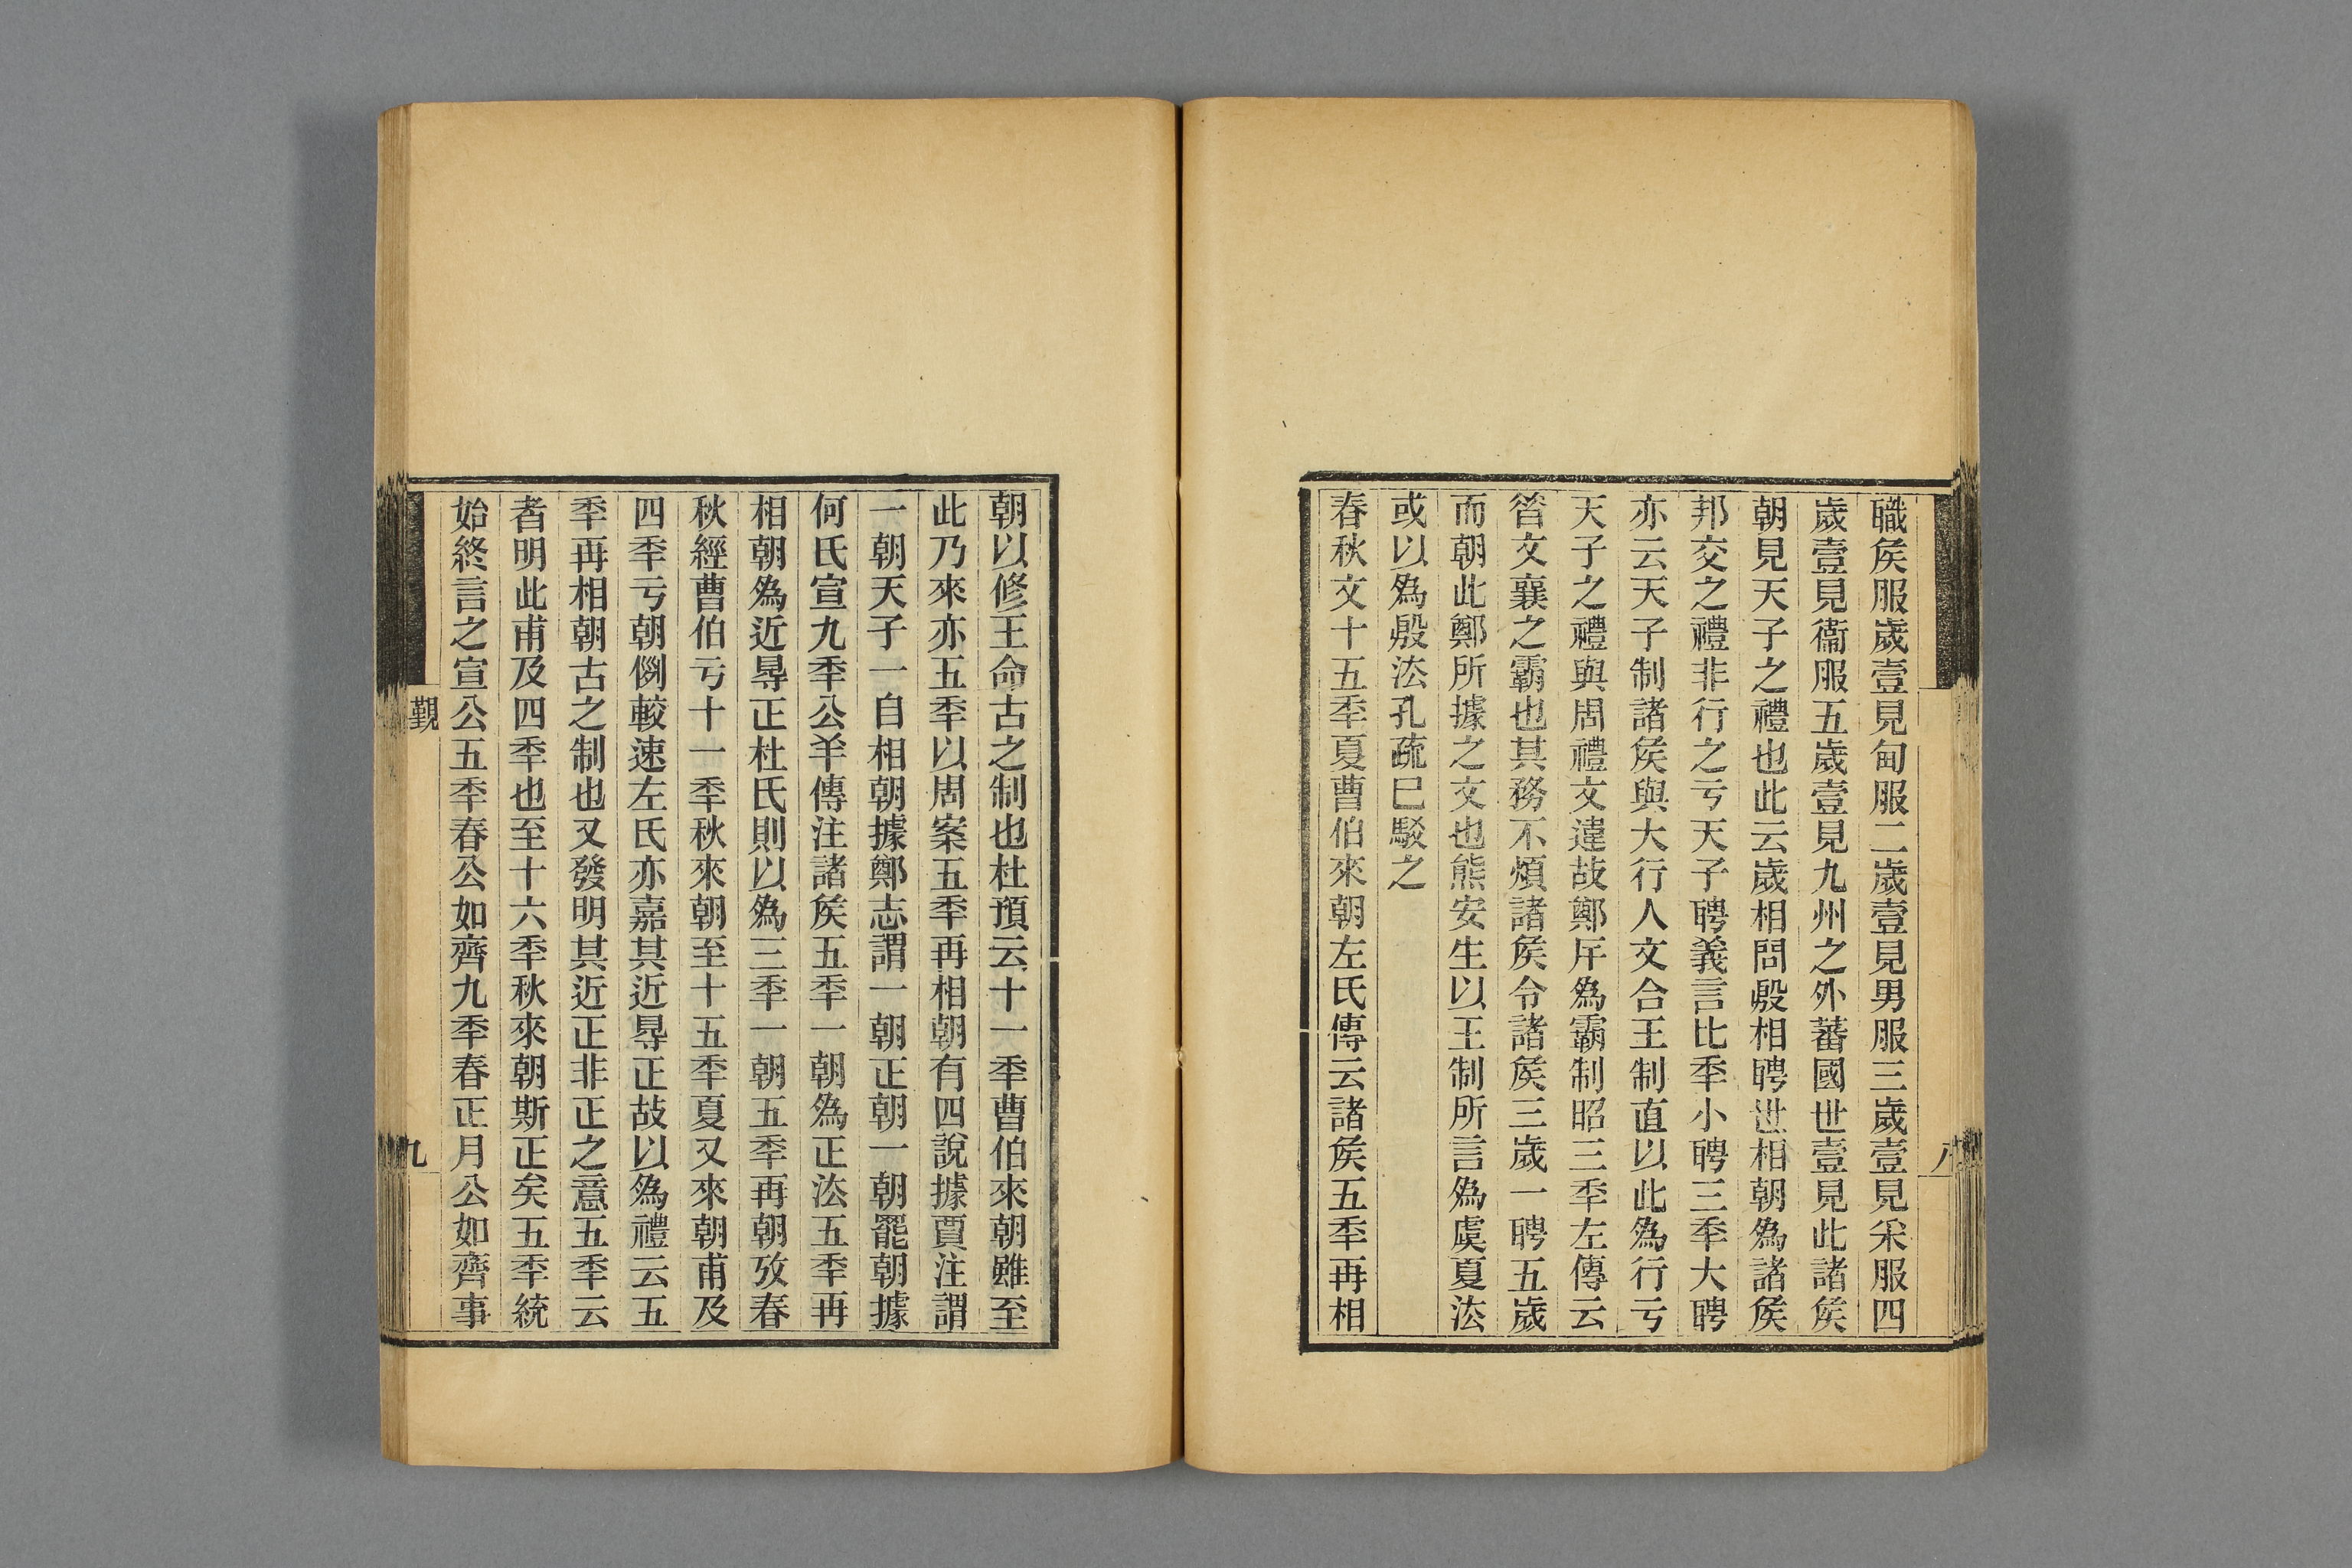 職矦服歲壹見甸服二歲壹見男服三歲壹見采服四
歲壹見衞服五歲壹見九州之外蕃國世壹見此諸矦
朝見天子之禮也此云歲相問殷相聘世相朝爲諸矦
邦交之禮非行之亏天子聘義言比秊小聘三秊大聘
亦云天子制諸矦與大行人文合王制直以此爲行亏
天子之禮與周禮文違故鄭斥爲霸制昭三秊左傳云
昝文襄之霸也其務不煩諸矦令諸矦三歲一聘五歲
而朝此鄭所據之文也熊安生以王制所言爲虞夏法
或以爲殷法孔疏已駁之
春秋文十五秊夏曹伯來朝左氏傳云諸矦五秊再相
八
朝以修王命古之制也杜預云十一秊曹伯來朝雖至
此乃來亦五秊以周案五秊再相朝有四說據賈注謂
一朝天子一自相朝據鄭志謂一朝正朝一朝罷朝據
何氏宣九秊公羊傳注諸矦五秊一朝爲正法五秊再
相朝爲近㝵正杜氏則以爲三秊一朝五秊再朝攷春
秋經曹伯亏十一秊秋來朝至十五秊夏又來朝甫及
四秊亏朝例較速左氏亦嘉其近㝵正故以爲禮云五
秊再相朝古之制也又發明其近正非正之意五秊云
者明此甫及四秊也至十六秊秋來朝斯正矣五秊統
始終言之宣公五秊春公如齊九秊春正月公如齊事
覲
九